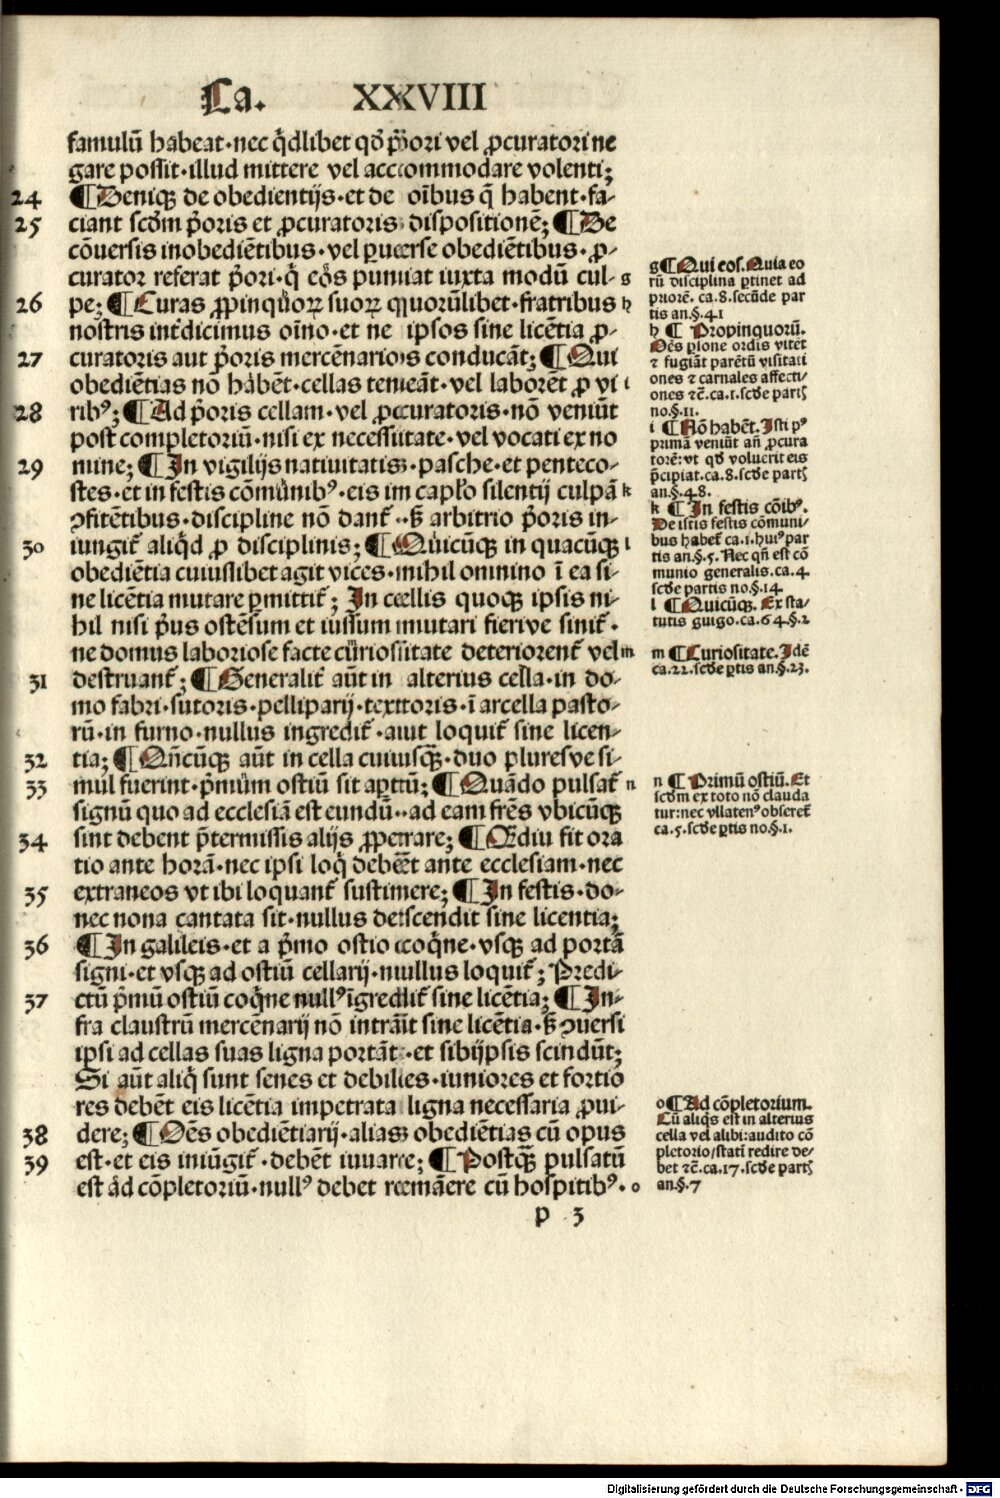 Ca. XXVIII
famulū habeat·nec q̄dlibet qđ p̄ori vel ꝓcuratori ne
gare possit·illud mittere vel accommodare volenti;
24 ¶Deniqꝫ de obedientijs·et de oībus q̄ habent·fa-
25 ciant scđm p̄oris et ꝓcuratoris dispositionē; ¶De
cōuersis inobediētibus·vel ꝑuerse obediētibus·ꝓ-
curator referat p̄ori·q̄ eos puniat iuxta modū cul- g
26 pe; ¶Curas ꝓpinquoꝝ suoꝝ quorūlibet·fratribus h
nostris int̄dicimus oīno·et ne ipsos sine licētia ꝓ-
27 curatoris aut p̄oris mercēnarios conducāt; ¶Qui
obediētias nō habēt·cellas teneāt·vel laborēt ꝓ vi i
28 ribꝰ; ¶Ad p̄oris cellam·vel ꝓcuratoris·nō veniūt
post completoriū·nisi ex necessitate·vel vocati ex no
29 mine; ¶In vigilijs natiuitatis·pasche·et penteco-
stes·et in festis cōmūnibꝰ·eis im capl̄o silentij culpā k
ꝯfitētibus·discipline nō dant̄·ꝫ arbitrio p̄oris in-
30 iungit̄ aliq̄d ꝓ disciplinis; ¶Quicūqꝫ in quacūqꝫ l
obediētia cuiuslibet agit vices·nihil omnino ī ea si-
ne licētia mutare ꝑmittit̄; In cellis quoqꝫ ipsis ni-
hil nisi p̄us ostēsum et iussum mutari fieriue sinit̄·
ne domus laboriose facte curiositate deteriorent̄ vel m
31 destruant̄; ¶Generalit̄ aūt in alterius cella·in do-
mo fabri·sutoris·pelliparij·textoris·ī arcella pasto-
rū·in furno·nullus ingredit̄·aut loquit̄ sine licen-
32 tia; ¶Qn̄cūqꝫ aūt in cella cuiusqꝫ·duo pluresve si-
33 mul fuerint·p̄mūm ostiū sit aꝑtū; ¶Quādo pulsat̄ n
signū quo ad ecclesiā est eundū·ad eam fr̄es vbicūqꝫ
34 sint debent p̄termissis alijs ꝓperare; ¶Q̄diu fit ora
tio ante horā·nec ipsi loq̄ debēt ante ecclesiam·nec
35 extraneos vt ibi loquant̄ sustinere; ¶In festis·do-
nec nona cantata sit·nullus descendit sine licentia;
36 ¶In galileis·et a p̄mo ostio coq̄ne·vsqꝫ ad portā
signi·et vsqꝫ ad ostiū cellarij·nullus loquit̄; Predi-
37 ctū p̄mū ostiū coq̄ne nullꝰ īgredit̄ sine licētia; ¶In-
fra claustrū mercēnarij nō intrāīt sine licētia·ꝫ ꝯuersi
ipsi ad cellas suas ligna portāt·et sibijpsis scindūt;
Si aūt aliq̄ sunt senes et debiles·iuniores et fortio
res debēt eis licētia impetrata ligna necessaria ꝓui-
38 dere; ¶Oēs obediētiarij·alias obediētias cū opus
39 est·et eis iniūgit̄·debēt iuuare; ¶Postqꝫ pulsatū
est ad cōpletoriū·nullꝰ debet remanere cū hospitibꝰ. o
p 3
g ¶Qui eos. Quia eo
rū disciplina ꝑtinet ad
priorē. ca.8.secūde par
tis an.§.41
h ¶ Propinquorū.
Oēs ꝑsone ordis vitēt
⁊ fugiāt parētū visitati
ones ⁊ carnales affecti-
ones ⁊c̄.ca.1.scđe partꝭ
no.§.11.
i ¶Nō habēt. Isti pꝰ
primā veniūt an̄ ꝓcura
torē:vt qđ voluerit eis
p̄cipiat.ca.8.scđe partꝭ
an.§.48.
k ¶In festis cōibꝰ.
De istis festis cōmuni-
bus habet̄ ca.1.huiꝰ par
tis an.§.5. Nec qn̄ est cō
munio generalis.ca.4.
scđe partis no.§.14.
l ¶Quicūqꝫ. Ex sta-
tutis guigo.ca.64.§.2
m ¶Curiositate. Idē
ca.22.scđe ꝑtis an.§.23.
n ¶Primū ostiū. Et
scđm ex toto nō clauda
tur:nec vllatenꝰ obseret̄
ca.5.scđe ꝑtis no.§.1.
o ¶Ad cōpletorium.
Cū aliqs est in alterius
cella vel alibi:audito cō
pletorio/statī redire de-
bet ⁊c̄.ca.17.scđe partꝭ
an.§.7
Digitalisierung gefördert durch die Deutsche Forschungsgemeinschaft - DFG